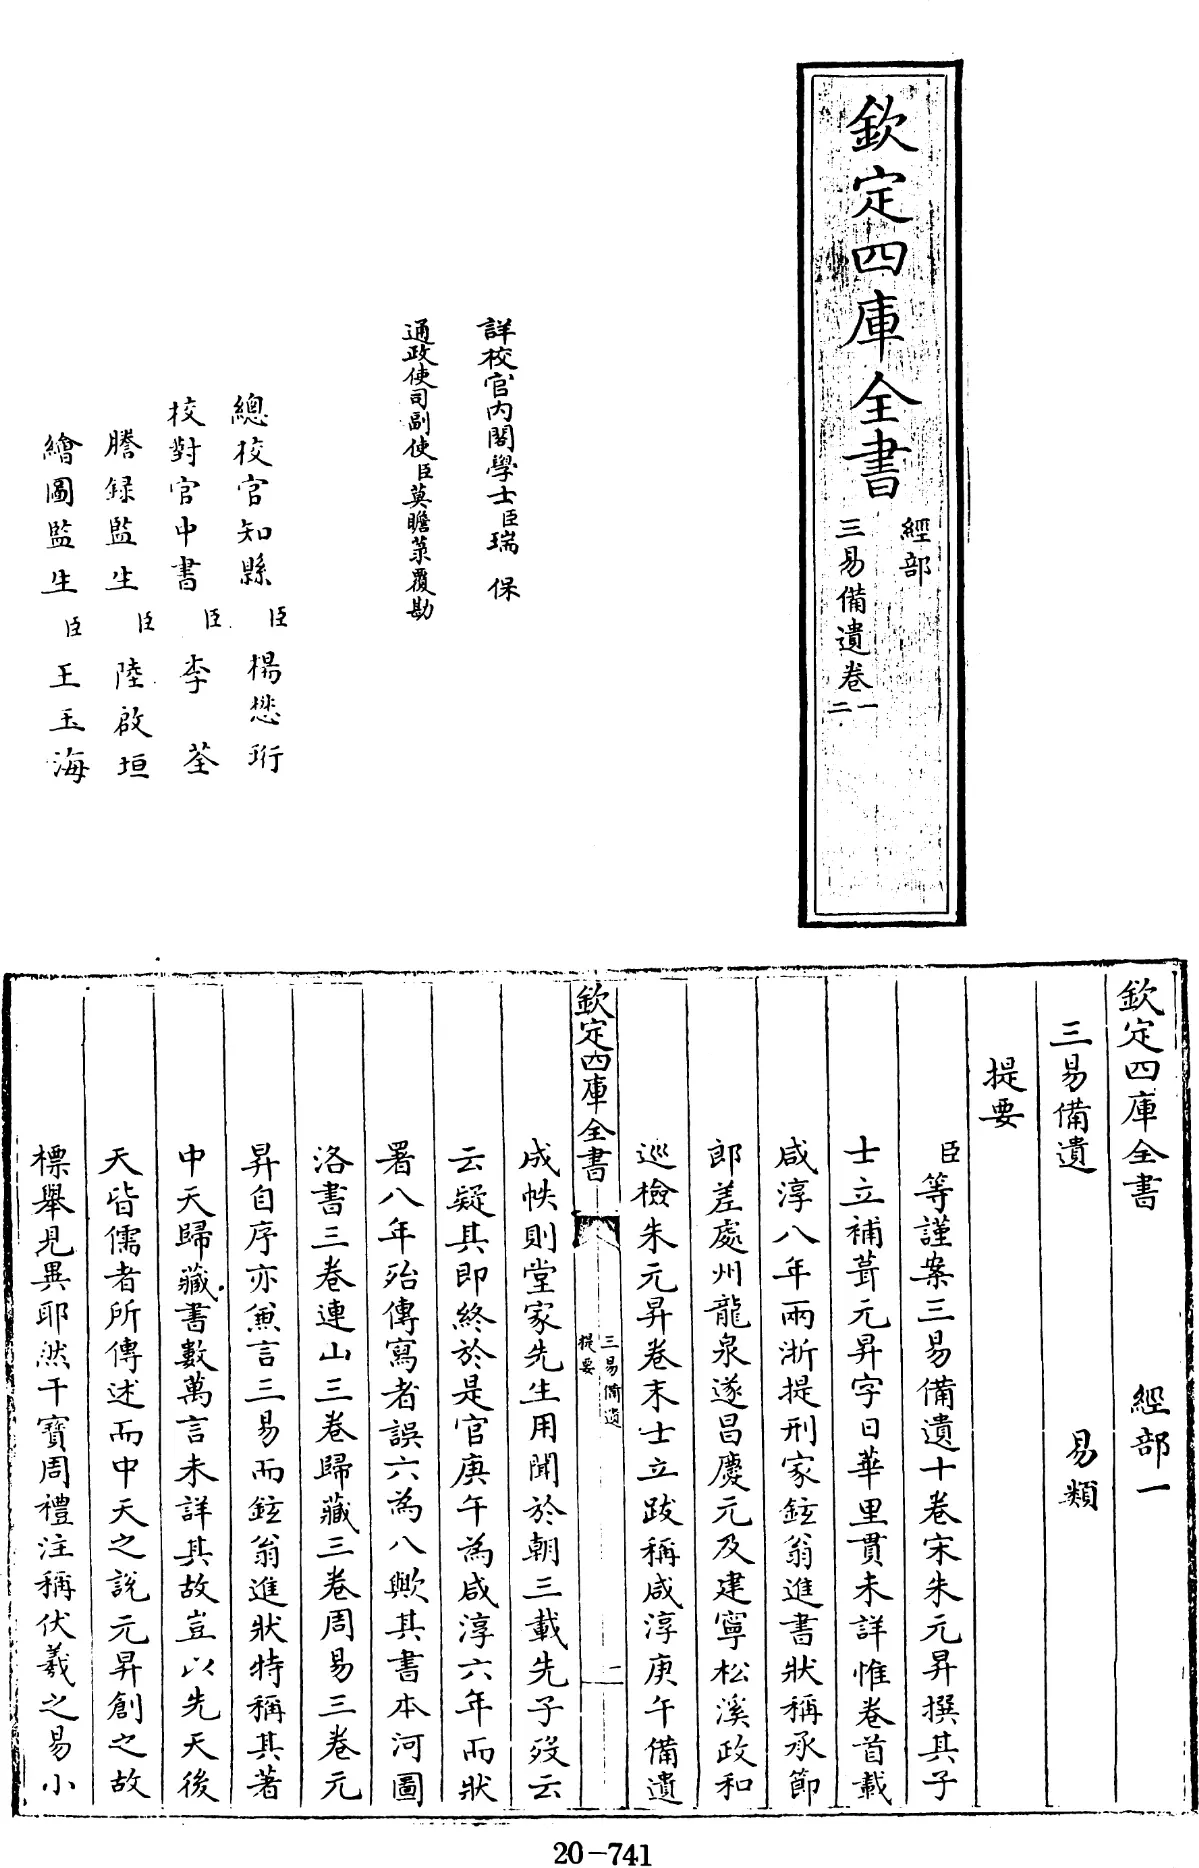 欽定四庫全書
經部
三易備遺卷一二
詳校官內閣學士臣瑞保
通政使司副使臣莫瞻菉覆勘
總校官知縣臣楊懋珩
校對官中書臣李荃
謄録監生臣陸啟垣
繪圖監生臣王玉海
欽定四庫全書 經部一
三易備遺 易類
提要
臣等謹案三易備遺十卷宋朱元昇撰其子
士立補葺元昇字日華里貫未詳惟卷首載
咸淳八年兩浙提刑家鉉翁進書狀稱承節
郎差處州龍泉遂昌慶元及建寧松溪政和
巡檢朱元昇卷末士立跋稱咸淳庚午備遺
欽定四庫全書
三易備遺
提要
二
成帙則堂家先生用聞於朝三載先子歿云
云疑其即終於是官庚午為咸淳六年而狀
署八年殆傳寫者誤六為八歟其書本河圖
洛書三卷連山三卷歸藏三卷周易三卷元
昇自序亦兼言三易而鉉翁進狀特稱其著
中天歸藏書數萬言未詳其故豈以先天後
天皆儒者所傳述而中天之說元昇創之故
標舉見異耶然干寶周禮注稱伏羲之易小
20-741